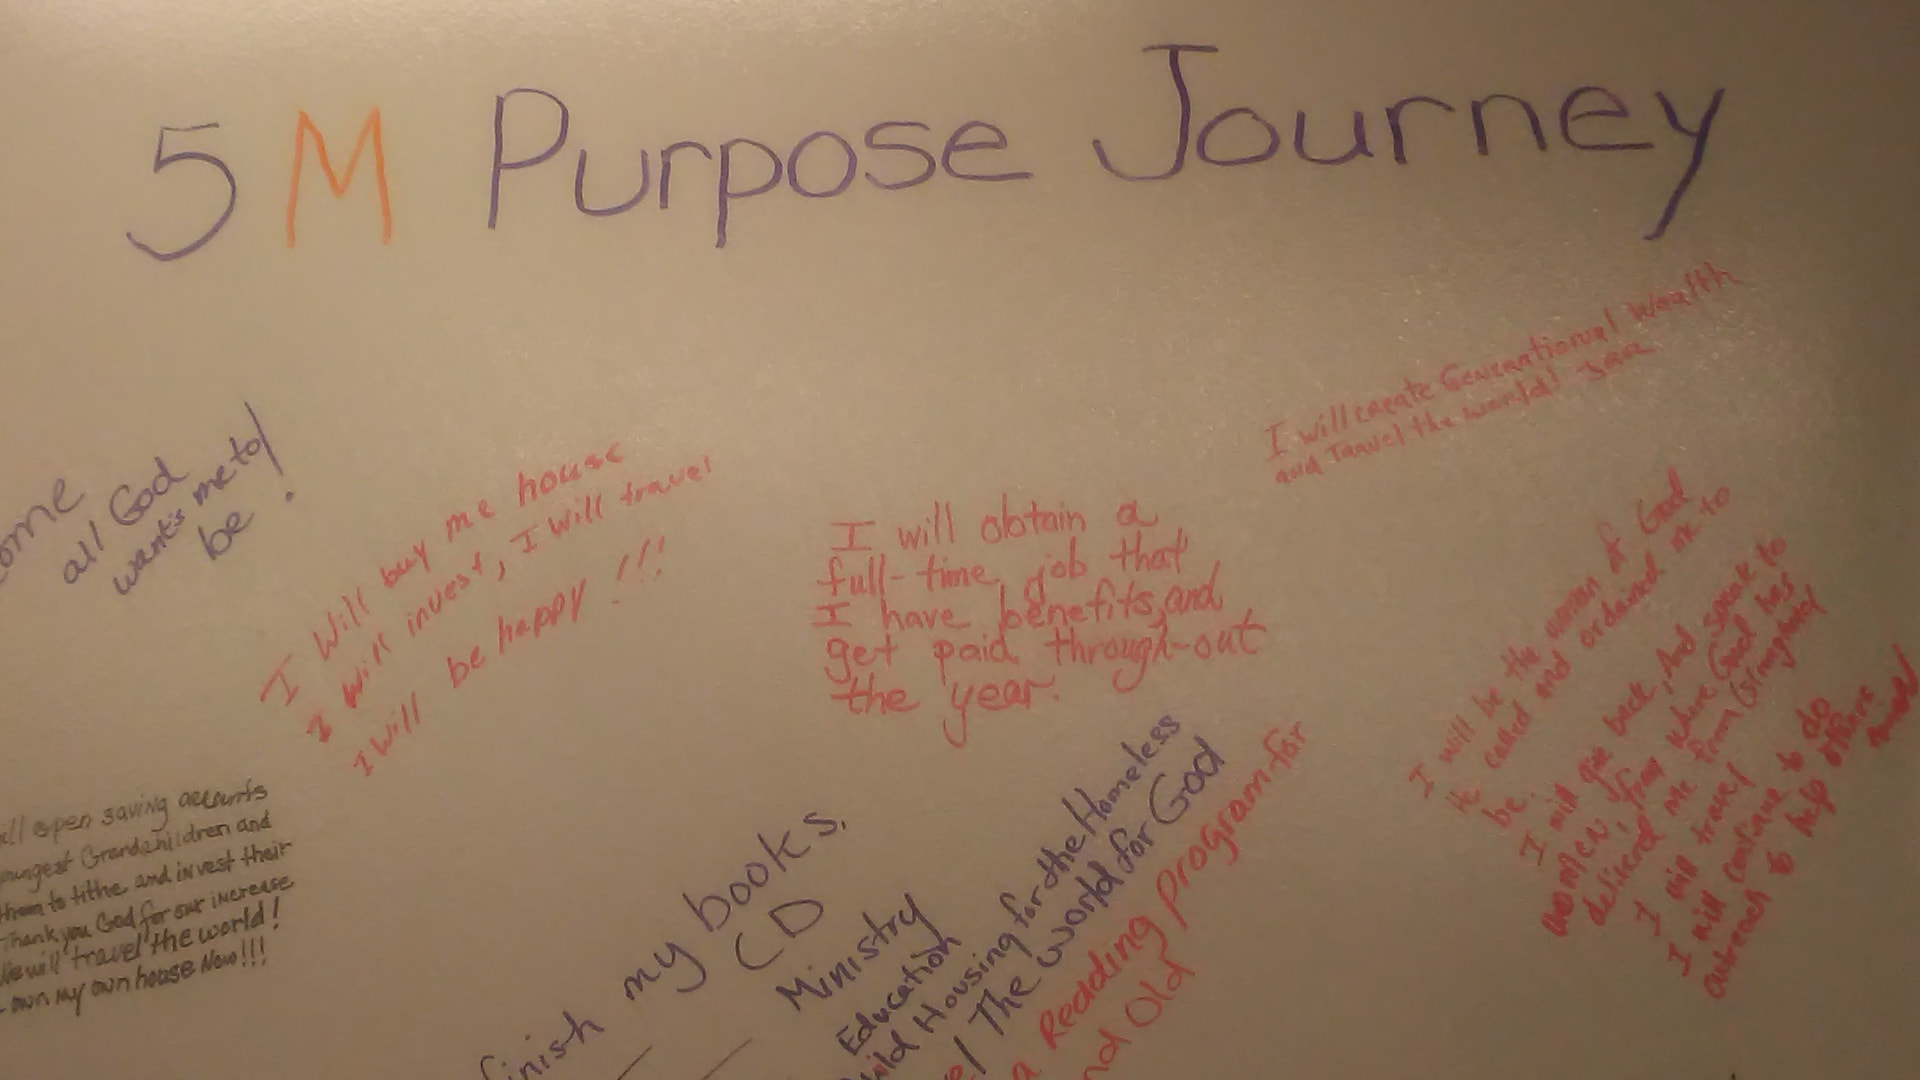 5 M Purpose Journey
all God
wants me to
be!
I will buy me house
I will invest, I will travel
I will be happy!!!
I will obtain a
full-time job that
I have benefits, and
get paid through-out
the year.
I will create Generational Wealth
and Travel the world!
I will be the woman of God
He called and ordained me to
be.
I will give back, And speak to
women, from where God has
delivered me from
I will travel
I will continue to do
outreach to help others
open saving accounts
youngest Grandchildren and
them to tithe and invest their
Thank you God for our increase
We will travel the world!
own my own house Now!!!
finish my books.
CD
Ministry
Education
Build Housing for the Homeless
The World for God
a Reading program for
and Old